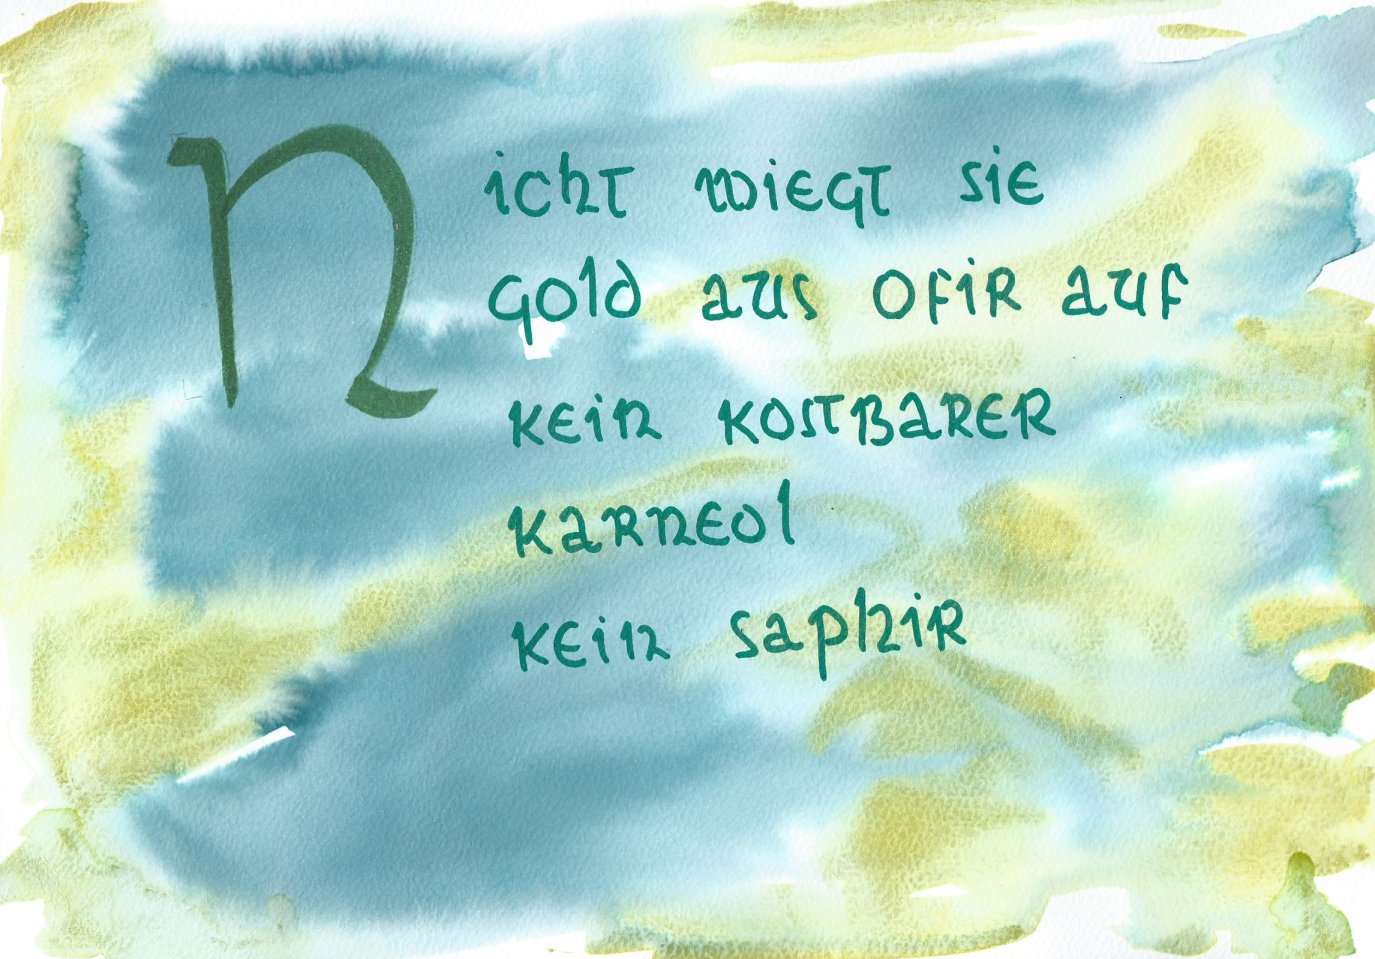 Nicht wiegt sie
Gold aus Ofir auf
kein kostbarer
Karneol
kein Saphir